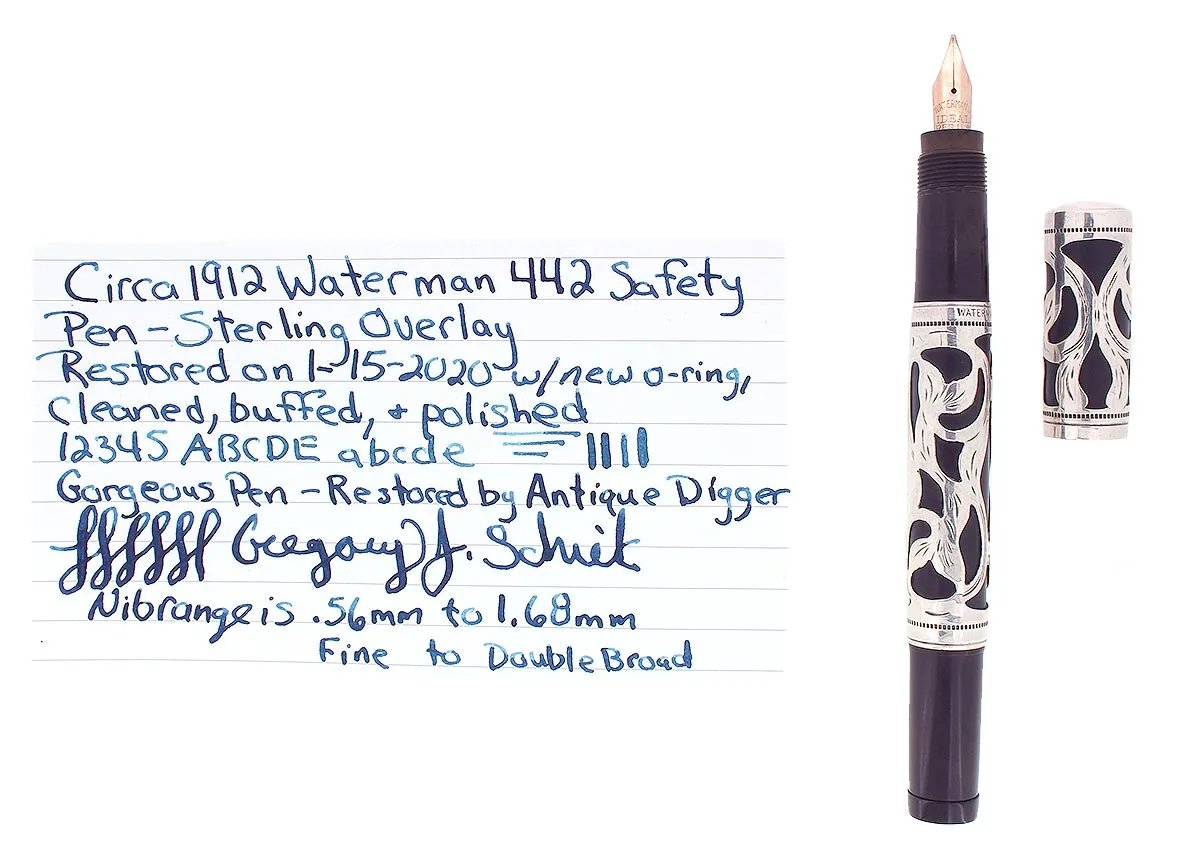 Circa 1912 Waterman 442 Safety
Pen - Sterling Overlay
Restored on 1-15-2020 w/new o-ring,
cleaned, buffed, + polished
12345 ABCDE abcde
Gorgeous Pen - Restored by Antique Digger
Gregory J.
Nib range is .56mm to 1.68mm
Fine to Double Broad
WATERMAN
IDEAL
WATERM